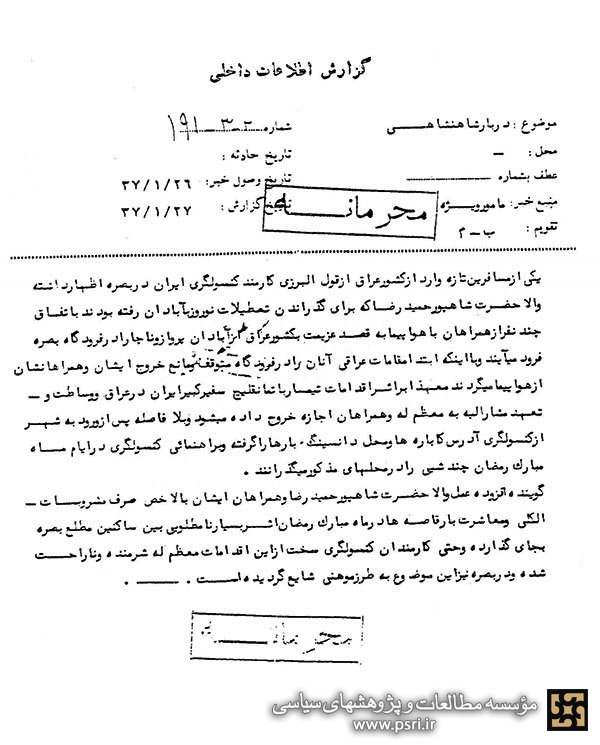 گزارش اطلاعات داخلی
موضوع : دربار شاهنشاهی
شماره ۳-۲-۱۹۱
محل : -
تاریخ حادثه :
عطف بشماره
تاریخ وصول خبر: ۳۷/۱/۲۶
منبع خبر: مامور ویژه
تاریخ گزارش : ۳۷/۱/۲۷
تقویم : ب-۳
محرمانه
یکی از مسافرین تازه وارد از کشور عراق از قول البرزی کارمند کنسولگری ایران در بصره اظهار داشته
والاحضرت شاهپور حمیدرضا که برای گذراندن تعطیلات نوروز بآبادان رفته بودند باتفاق
چند نفر از همراهان با هواپیما به قصد عزیمت بکشور عراق از آبادان پرواز و ناچار در فرودگاه بصره
فرود میآیند و با اینکه ابتدا مقامات عراقی آنان را در فرودگاه متوقف و مانع خروج ایشان و همراهانشان
از هواپیما میگردند معهذا بر اثر اقدامات تیمسار باتمانقلیچ سفیر کبیر ایران در عراق و وساطت و -
تعهد مشارالیه به معظم له و همراهان اجازه خروج داده میشود و بلا فاصله پس از ورود به شهر
از کنسولگری آدرس کاباره ها و محل دانسینگ بارها را گرفته و براهنمائی کنسولگری در ایام ماه
مبارک رمضان چند شبی را در محلهای مذکور میگذرانند .
گوینده افزوده عمل والاحضرت شاهپور حمیدرضا و همراهان ایشان بالاخص صرف مشروبات -
الکلی و معاشرت با رقاصه ها در ماه مبارک رمضان اثر بسیار نامطلوبی بین ساکنین مطلع بصره
بجای گذارده و حتی کارمندان کنسولگری سخت از این اقدامات معظم له شرمنده و ناراحت
شده و در بصره نیز این موضوع به طرز موهنی شایع گردیده است .
محرمانه
مؤسسه مطالعات و پژوهشهای سیاسی
www.psri.ir